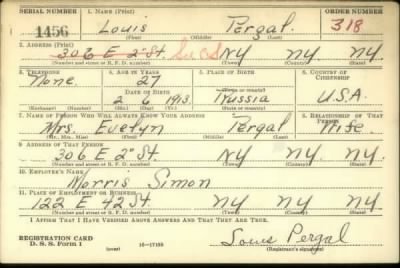 SERIAL NUMBER 1. NAME (Print) ORDER NUMBER
1456 Louis Pergal 318
(First) (Middle) (Last)
2. ADDRESS (Print)
306 E 2" St. NY NY NY
(Number and street or R. F. D. number) (Town) (County) (State)
3. TELEPHONE 4. AGE IN YEARS 5. PLACE OF BIRTH 6. COUNTRY OF CITIZENSHIP
None. 27
DATE OF BIRTH (Town or county)
2 6 1913 Russia U.S.A.
(Exchange) (Number) (Mo.) (Day) (Yr.) (State or country)
7. NAME OF PERSON WHO WILL ALWAYS KNOW YOUR ADDRESS 8. RELATIONSHIP OF THAT PERSON
Mrs. Evelyn Pergal Wife
(Mr., Mrs., Miss) (First) (Middle) (Last)
9. ADDRESS OF THAT PERSON
306 E 2" St. NY NY NY
(Number and street or R. F. D. number) (Town) (County) (State)
10. EMPLOYER'S NAME
Morris Simon
11. PLACE OF EMPLOYMENT OR BUSINESS
122 E 42 St NY NY NY
(Number and street or R. F. D. number) (Town) (County) (State)
I AFFIRM THAT I HAVE VERIFIED ABOVE ANSWERS AND THAT THEY ARE TRUE.
REGISTRATION CARD
D. S. S. Form 1 (over) 16-17105 Louis Pergal
(Registrant's signature)